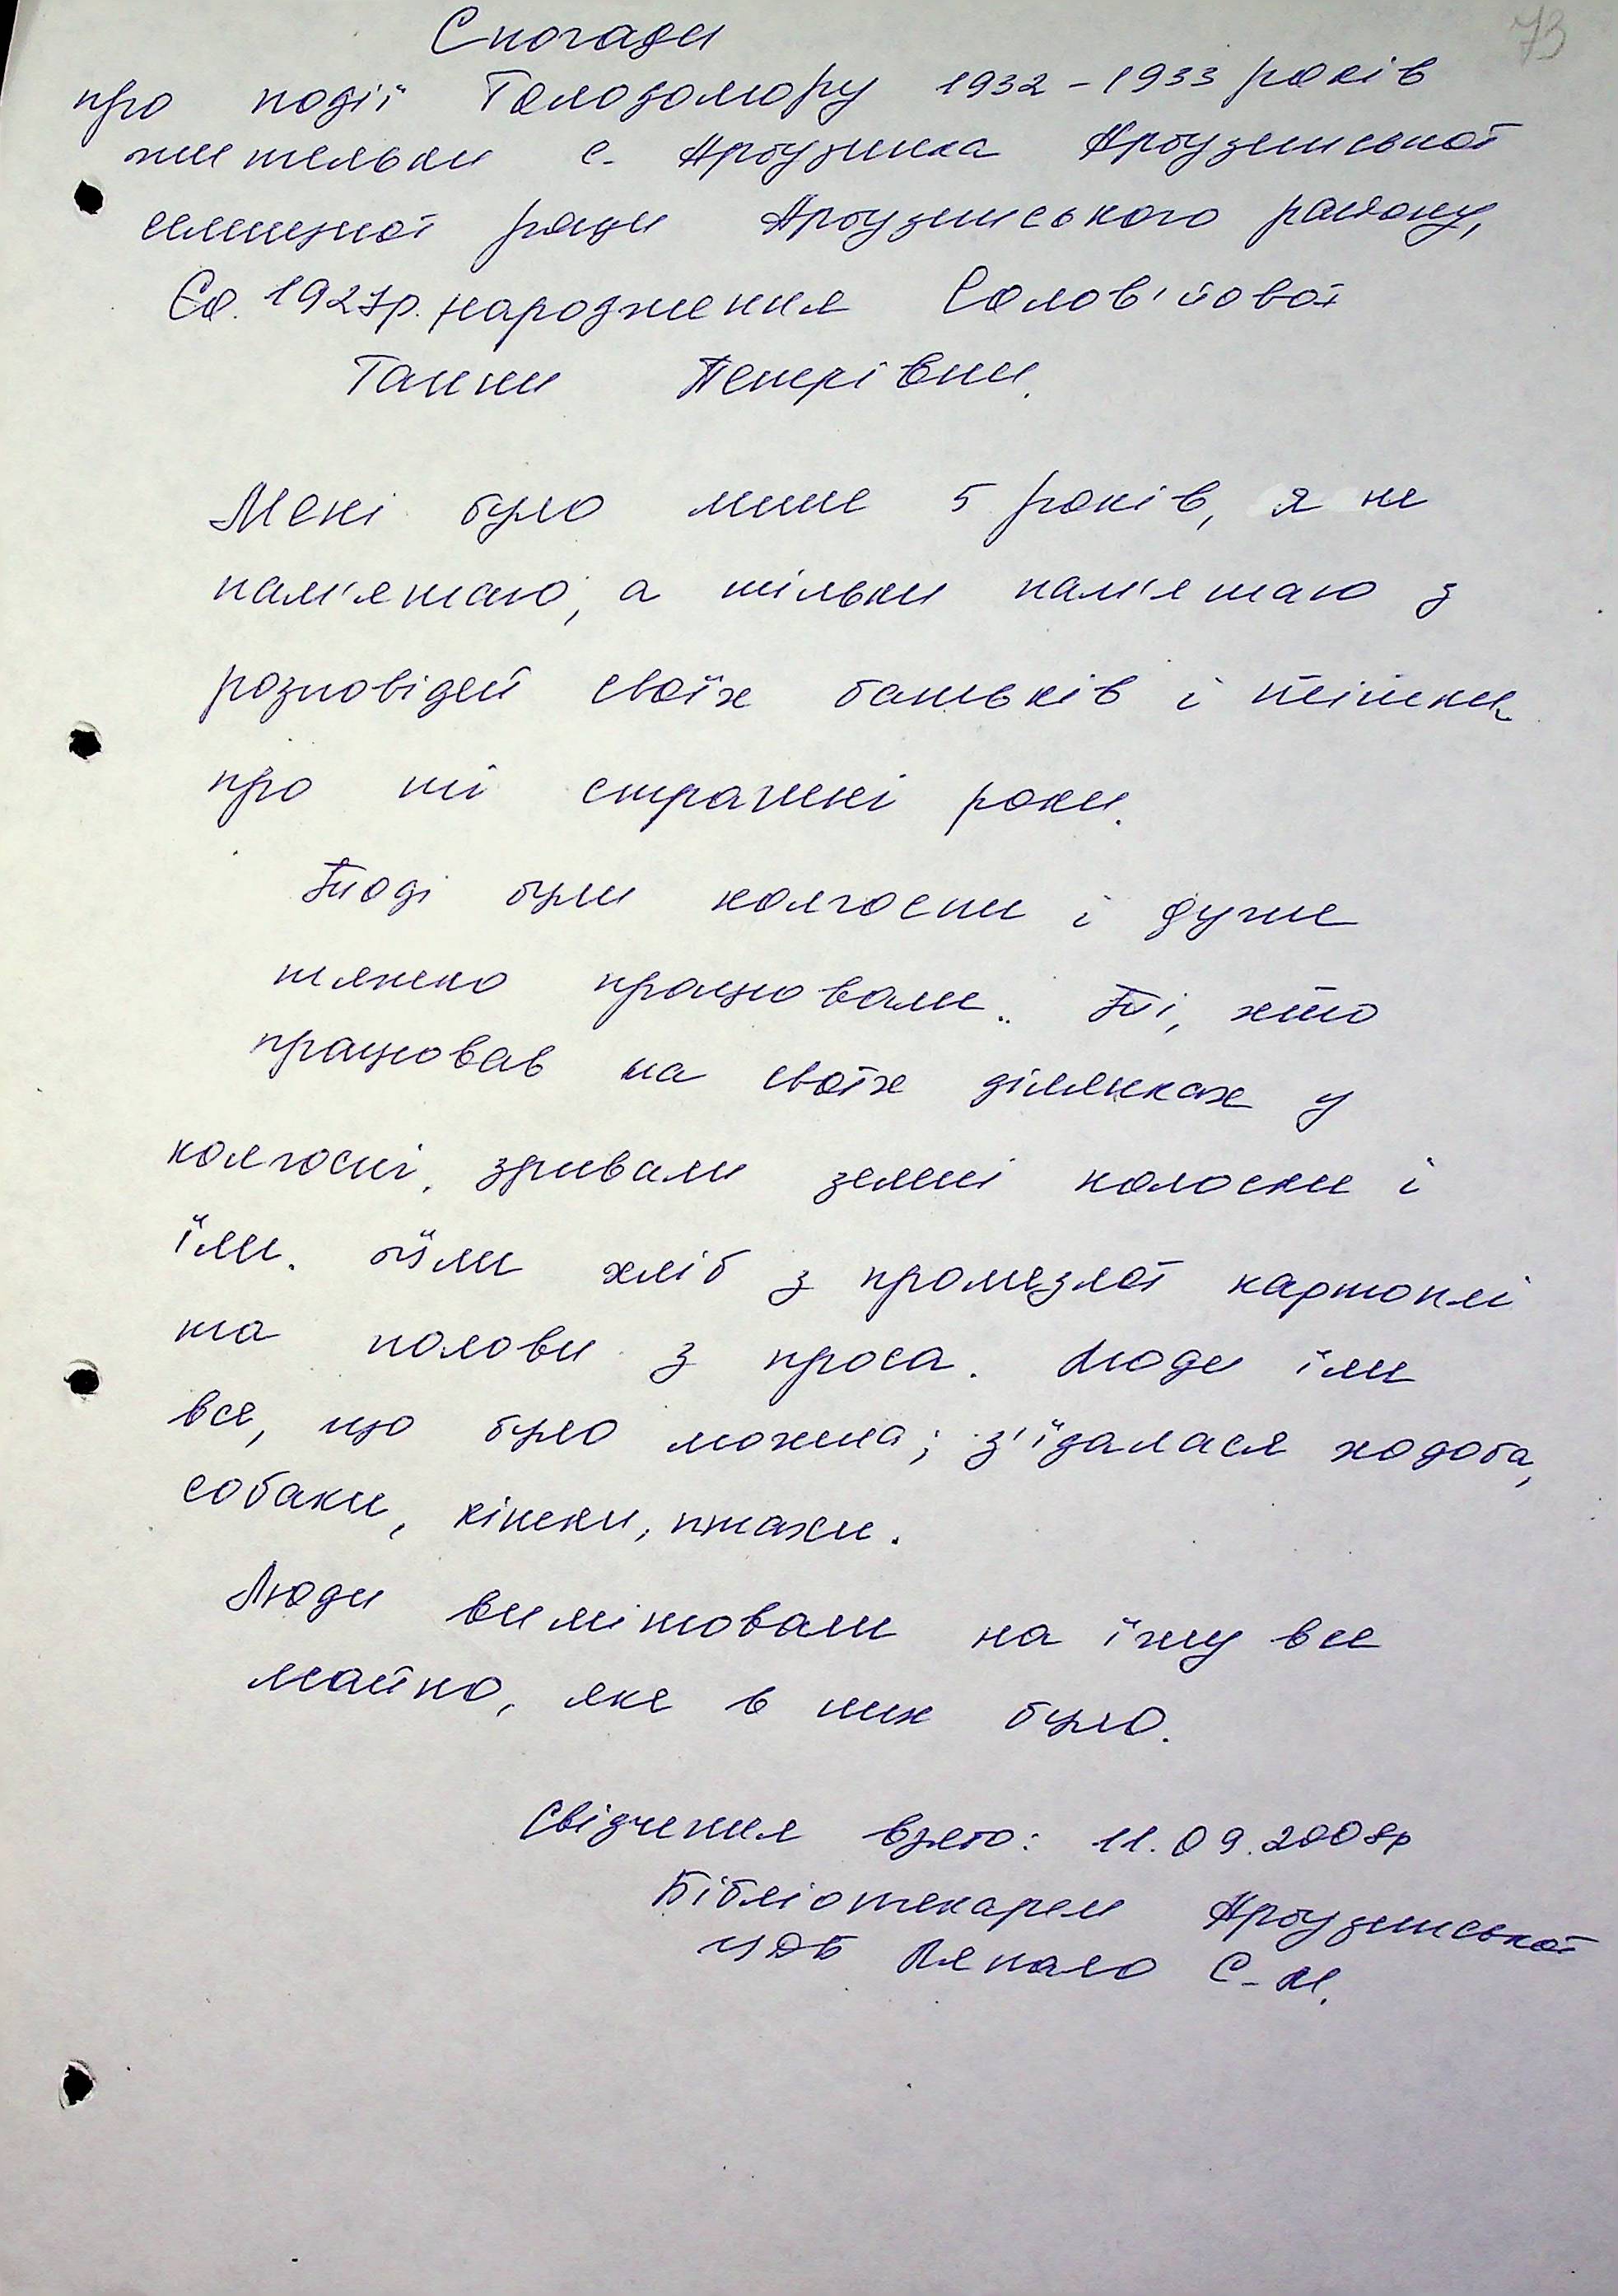 73
Спогади
про події Голодомору 1932-1933 років
жительки с. Арбузинка Арбузинської
селищної ради Арбузинського району,
1927р. народження Солов'йової
Ганни Петрівни.
Мені було лише 5 років, я не
пам'ятаю, а тільки пам'ятаю з
розповідей своїх батьків і тітки
про ті страшні роки.
Тоді були колгоспи і дуже
тяжко працювали. Ті, хто
працював на своїх ділянках у
колгоспі, зривали зелені колоски і
їли. Їли хліб з промерзлої картоплі
та полови з проса. Люди їли
все, що було можна; з'їдалася худоба,
собаки, кішки, птахи.
Люди вимінювали на їжу все
майно, яке в них було.
Свідчення взято: 11.09.2008р
Бібліотекарем Арбузинської
ЦДБ С.М.